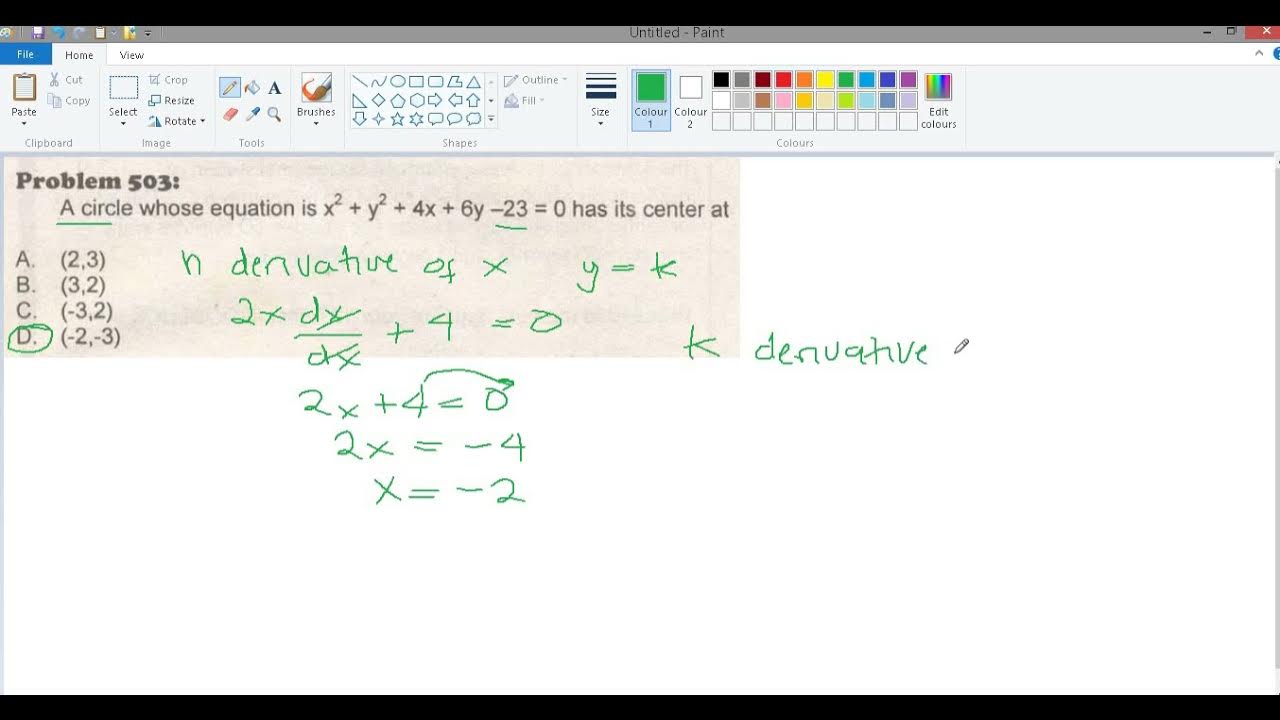 Untitled - Paint
File Home View
Paste Cut Copy Select Crop Resize Rotate A Brushes Outline Fill Size Colour 1 Colour 2 Edit colours
Clipboard Image Tools Shapes Colours
Problem 503:
A circle whose equation is x² + y² + 4x + 6y –23 = 0 has its center at
A. (2,3)
B. (3,2)
C. (-3,2)
D. (-2,-3)
h derivative of x y = k
2x dx/dx + 4 = 0
k derivative
2x + 4 = 0
2x = -4
x = -2